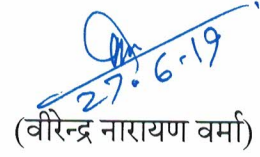 27.6.19
(वीरेन्द्र नारायण वर्मा)